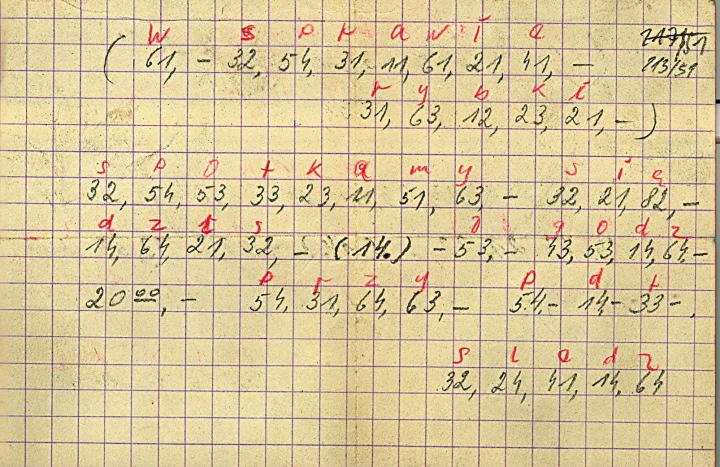 w s p r a w i e
( 61, - 32, 54, 31, 11, 61, 21, 41, -
213/59
r y b k i
31, 63, 12, 23, 21, - )
s p o t k a m y s i ę
32, 54, 53, 33, 23, 11, 51, 63, - 32, 21, 82, -
d z i s o g o d z
14, 64, 21, 32, - (14.) - 53, - 43, 53, 14, 64 -
p r z y p d t
20 00, - 54, 31, 64, 63, - 54, - 14, - 33 -.
s l e d z
32, 24, 41, 14, 64